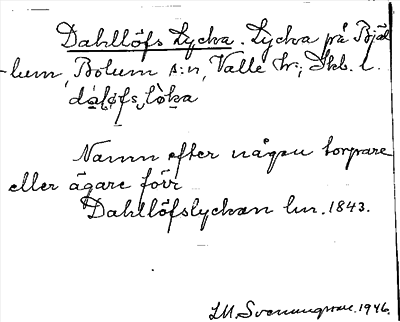 Dahllöfs Lycka. Lycka på Bjäl-
lum, Bolum s:n, Valle hd; Skb. l.
dáḷǿfs lø̀ka
Namn efter någon torpare
eller ägare förr
Dahllöfslyckan lm. 1843.
I.M. Svenungsson. 1946.